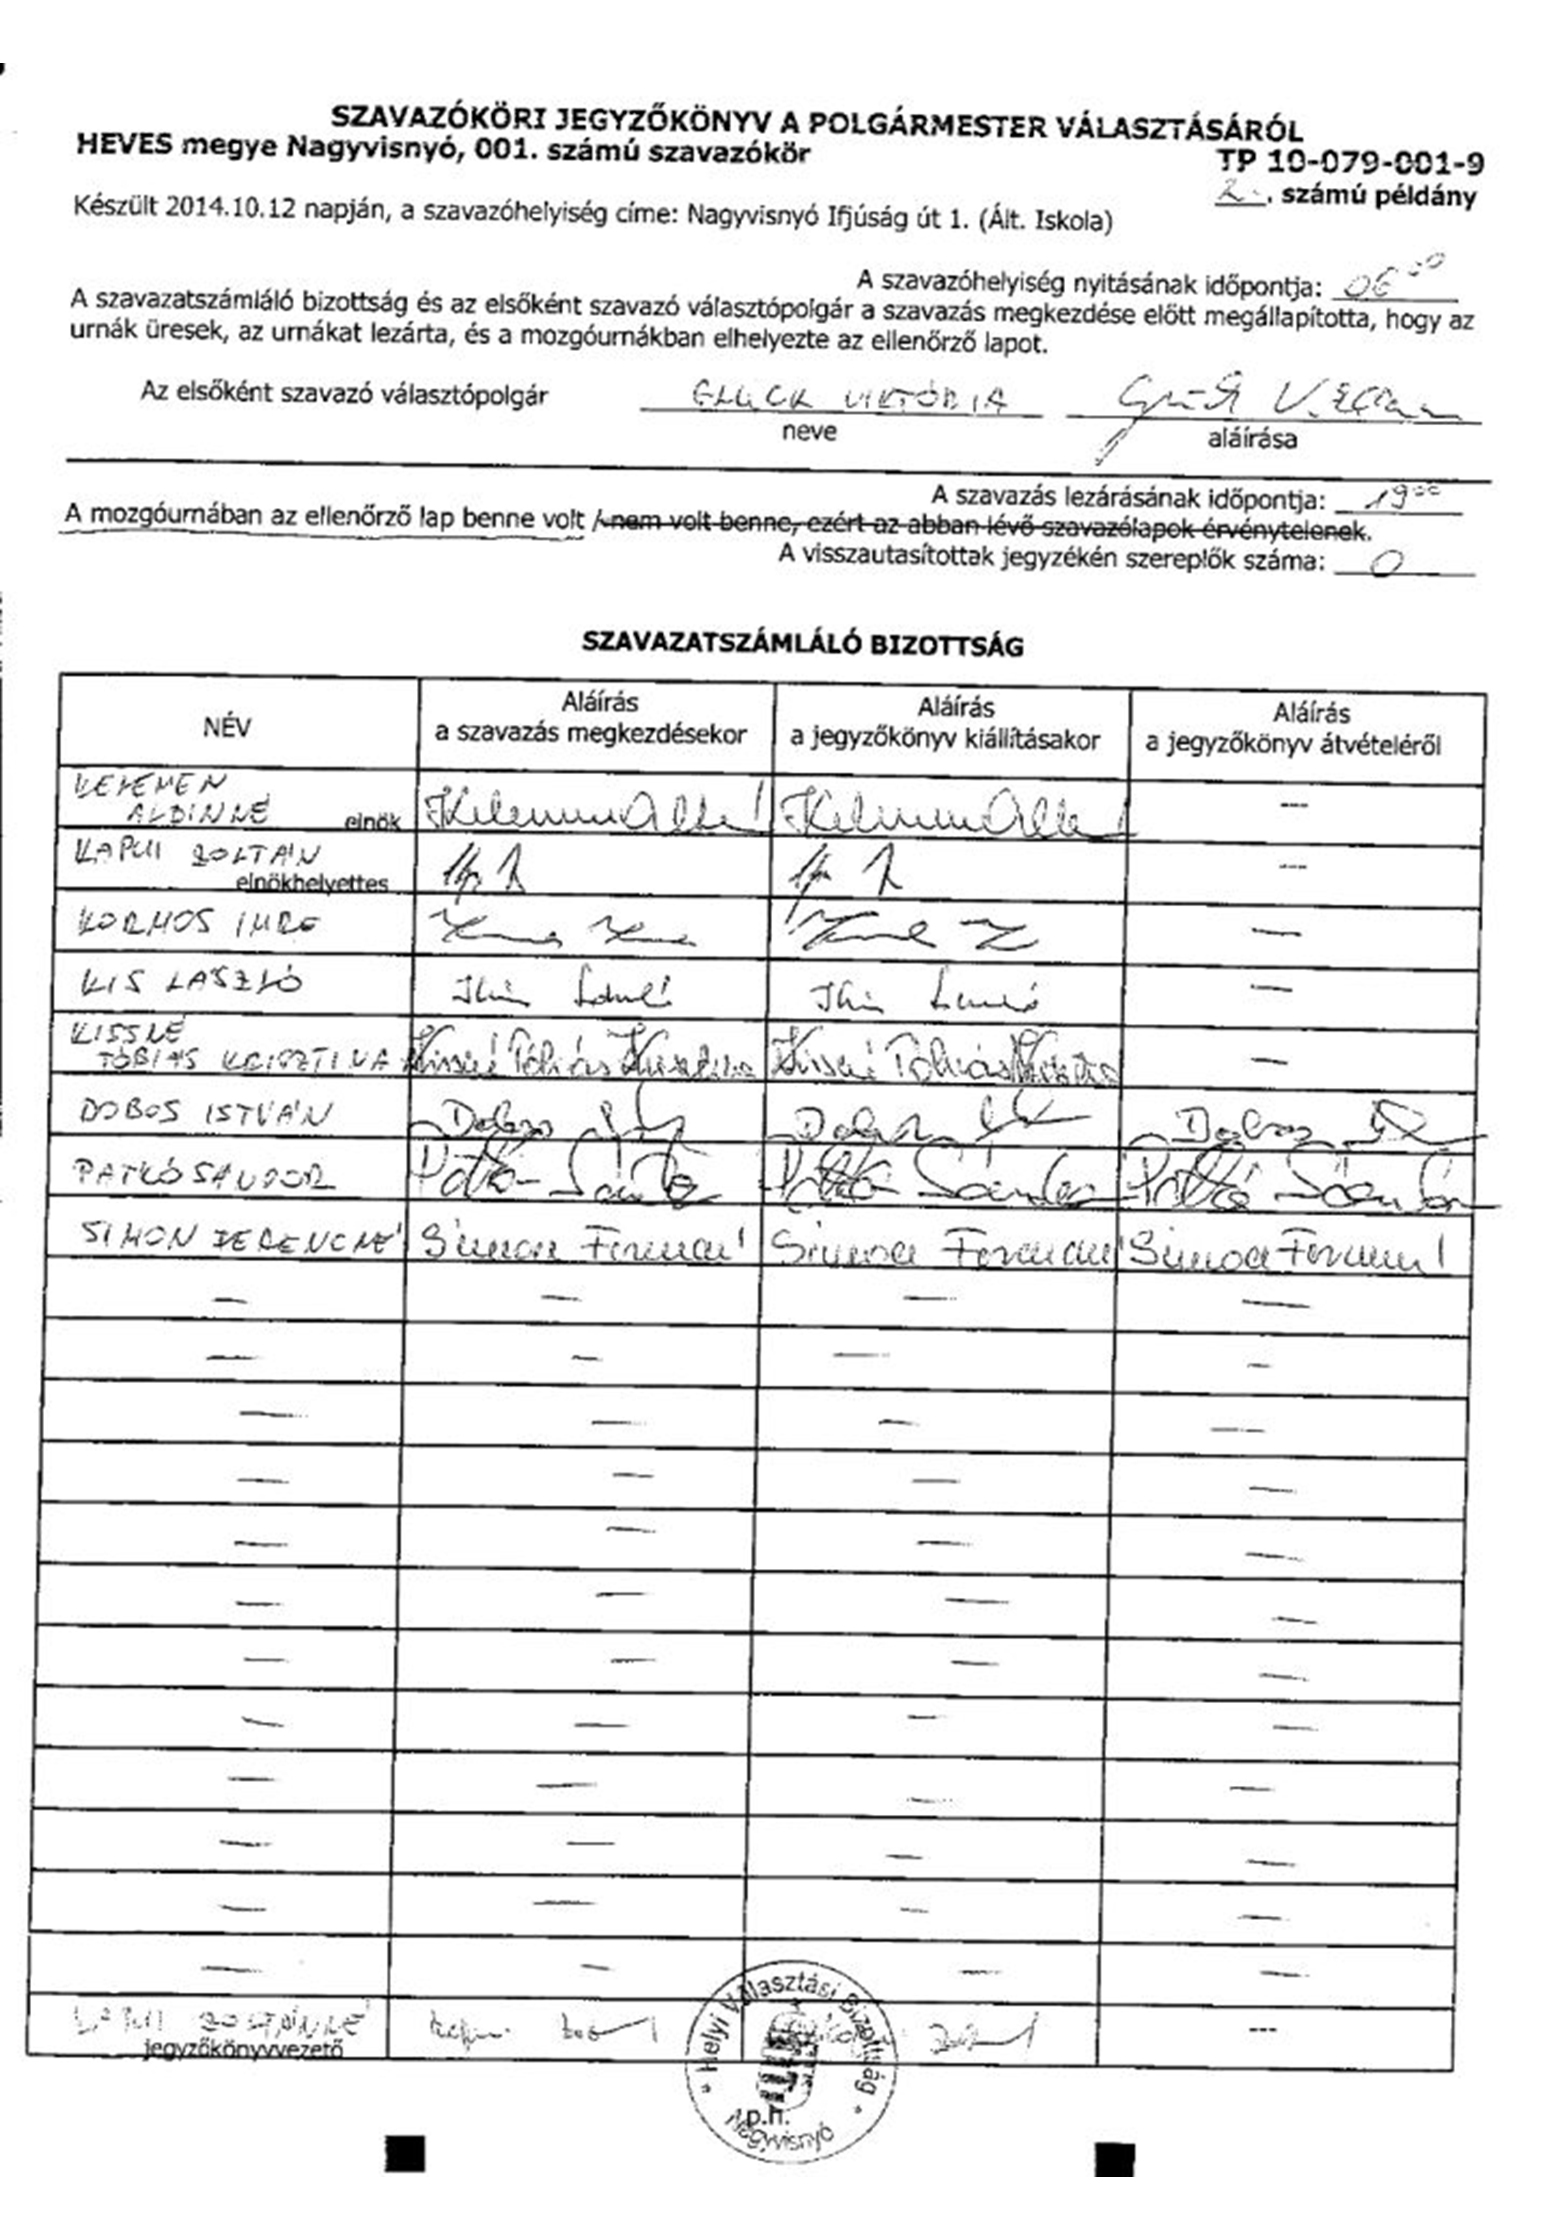 SZAVAZÓKÖRI JEGYZŐKÖNYV A POLGÁRMESTER VÁLASZTÁSÁRÓL
HEVES megye Nagyvisnyó, 001. számú szavazókör
TP 10-079-001-9
2. számú példány
Készült 2014.10.12 napján, a szavazóhelyiség címe: Nagyvisnyó Ifjúság út 1. (Ált. Iskola)
A szavazóhelyiség nyitásának időpontja: 06 00
A szavazatszámláló bizottság és az elsőként szavazó választópolgár a szavazás megkezdése előtt megállapította, hogy az
urnák üresek, az urnákat lezárta, és a mozgóurnákban elhelyezte az ellenőrző lapot.
Az elsőként szavazó választópolgár VIKTÓRIA
neve aláírása
A szavazás lezárásának időpontja: 19 00
A mozgóurnában az ellenőrző lap benne volt / nem volt benne, ezért az abban lévő szavazólapok érvénytelenek.
A visszautasítottak jegyzékén szereplők száma: 0
SZAVAZATSZÁMLÁLÓ BIZOTTSÁG
NÉV
Aláírás
a szavazás megkezdésekor
Aláírás
a jegyzőkönyv kiállításakor
Aláírás
a jegyzőkönyv átvételéről
KELEMEN
ALBINNÉ elnök ---
KAPUI ZOLTÁN
elnökhelyettes ---
KORMOS IMRE —
KIS LÁSZLÓ Kis László Kis László —
KISSNÉ
TÓBIÁS KRISZTINA Kissné Tóbiás Krisztina Kissné Tóbiás Krisztina —
DOBOS ISTVÁN Dobos Dobos Dobos
PATKÓ SÁNDOR Patkó Sándor Patkó Sándor Patkó Sándor
SIMON FERENCNÉ Simon Ferencné Simon Ferencné Simon Ferencné
— — — —
— — — —
— — — —
— — — —
— — — —
— — — —
— — — —
— — — —
— — — —
— — — —
— — — —
— — — —
KAPUI ZOLTÁNNÉ ---
jegyzőkönyvvezető
Helyi Választási Bizottság
p.h.
Nagyvisnyó